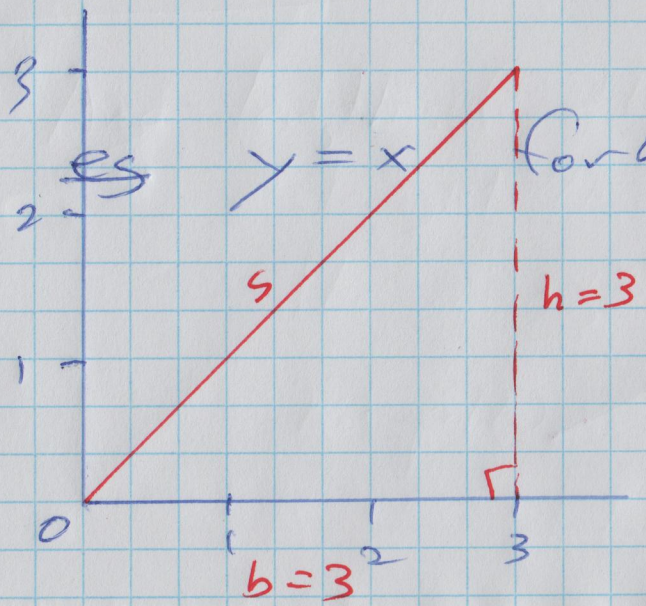 3
eg y = x (for
2
s
h = 3
1
0 1 2 3
b = 3